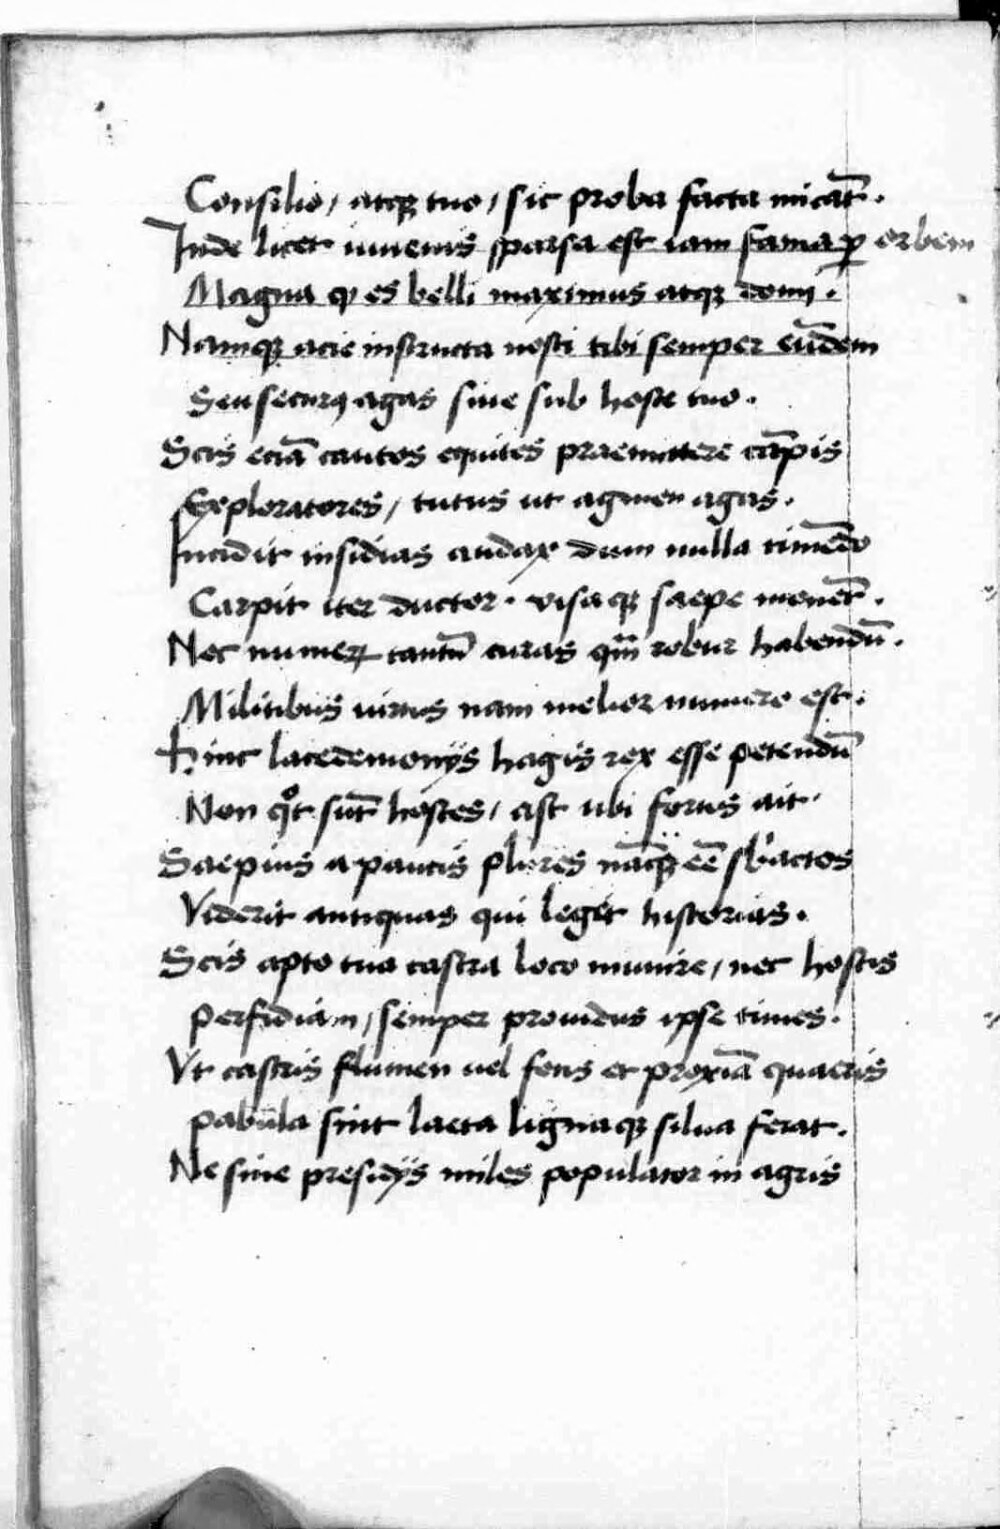 Consilio / atqꝫ tuo / sic proba facta micāt .
Inde licet iuuenis sparsa est iam fama ꝑ orbem
Magna ꝙ es belli maximus atqꝫ domi .
Namqꝫ acie instructa nosti tibi semper eūdem
Seu securꝰ agas siue sub hoste tuo .
Scis eciā cautos equites praemittere cāpis
Exploratores / tutus ut agmen agas .
Incidit insidias audax dum nulla timēdo
Carpit iter ductor . visaqꝫ saepe monēt .
Nec numeꝝ tantū curas qm̄ robur habendū .
Militibus uirtus nam melior numero est .
Hinc lacedemonijs hagis rex esse petendū
Non qͦt sūt hostes / ast ubi fortis ait .
Saepius a paucis plures nāqꝫ eē sb'actos
Viderit antiquas qui legit historias .
Scis apto tua castra loco munire / nec hostis
perfidiam / semper prouidus ipse times .
Vt castris flumen uel fons et proxīa quaeris
pabula sint laeta lignaqꝫ silua ferat .
Ne siue presidijs miles populator in agris